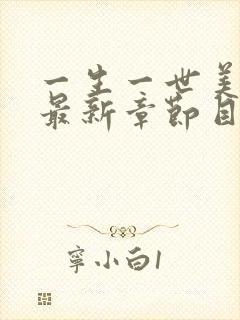 一生一世美
最新章节目
寧小白1